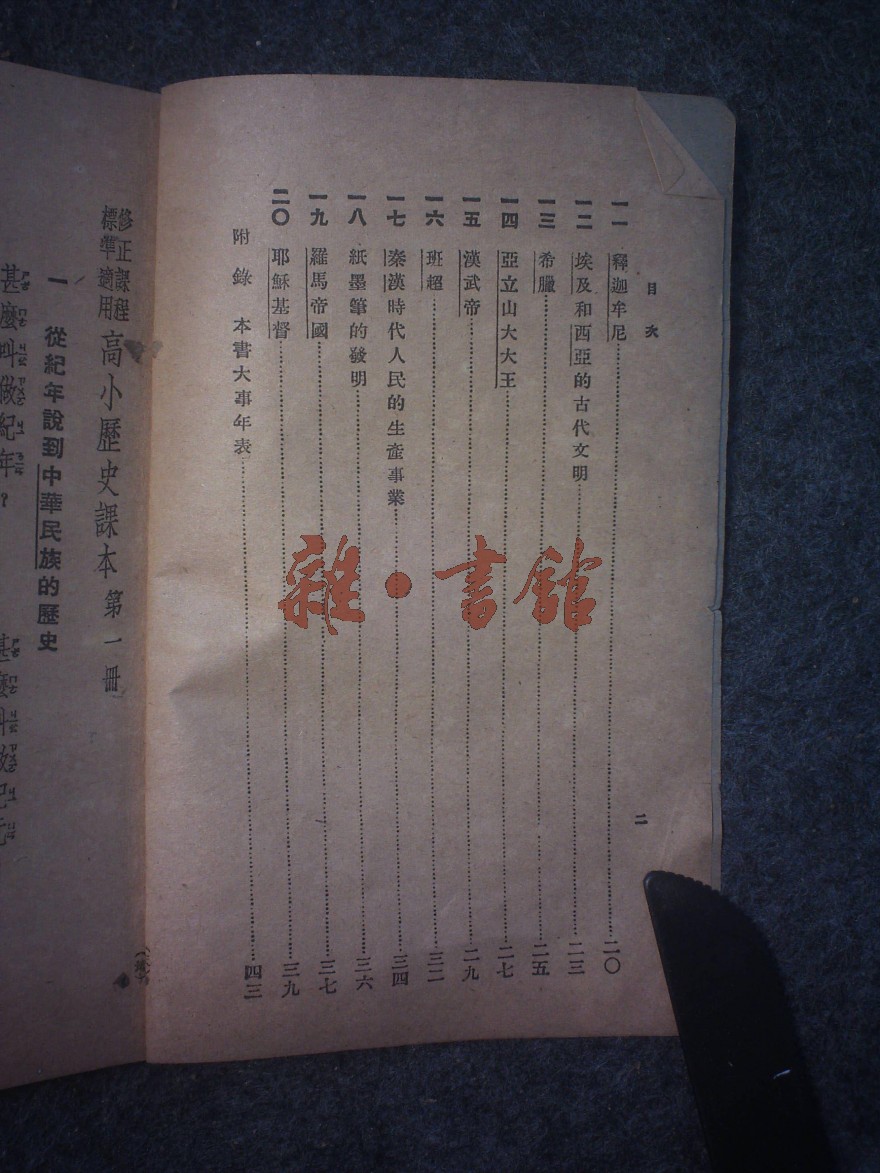 目次
一一 釋迦牟尼……二〇
一二 埃及和西亞的古代文明……二三
一三 希臘……二五
一四 亞立山大大王……二七
一五 漢武帝……二九
一六 班超……三二
一七 秦漢時代人民的生產事業……三四
一八 紙墨筆的發明……三六
一九 羅馬帝國……三七
二〇 耶穌基督……三九
附錄 本書大事年表……四三
二
雜·書館
修正課程標準適用 高小歷史課本 第一冊
一 從紀年說到中華民族的歷史
甚麼叫做紀年?